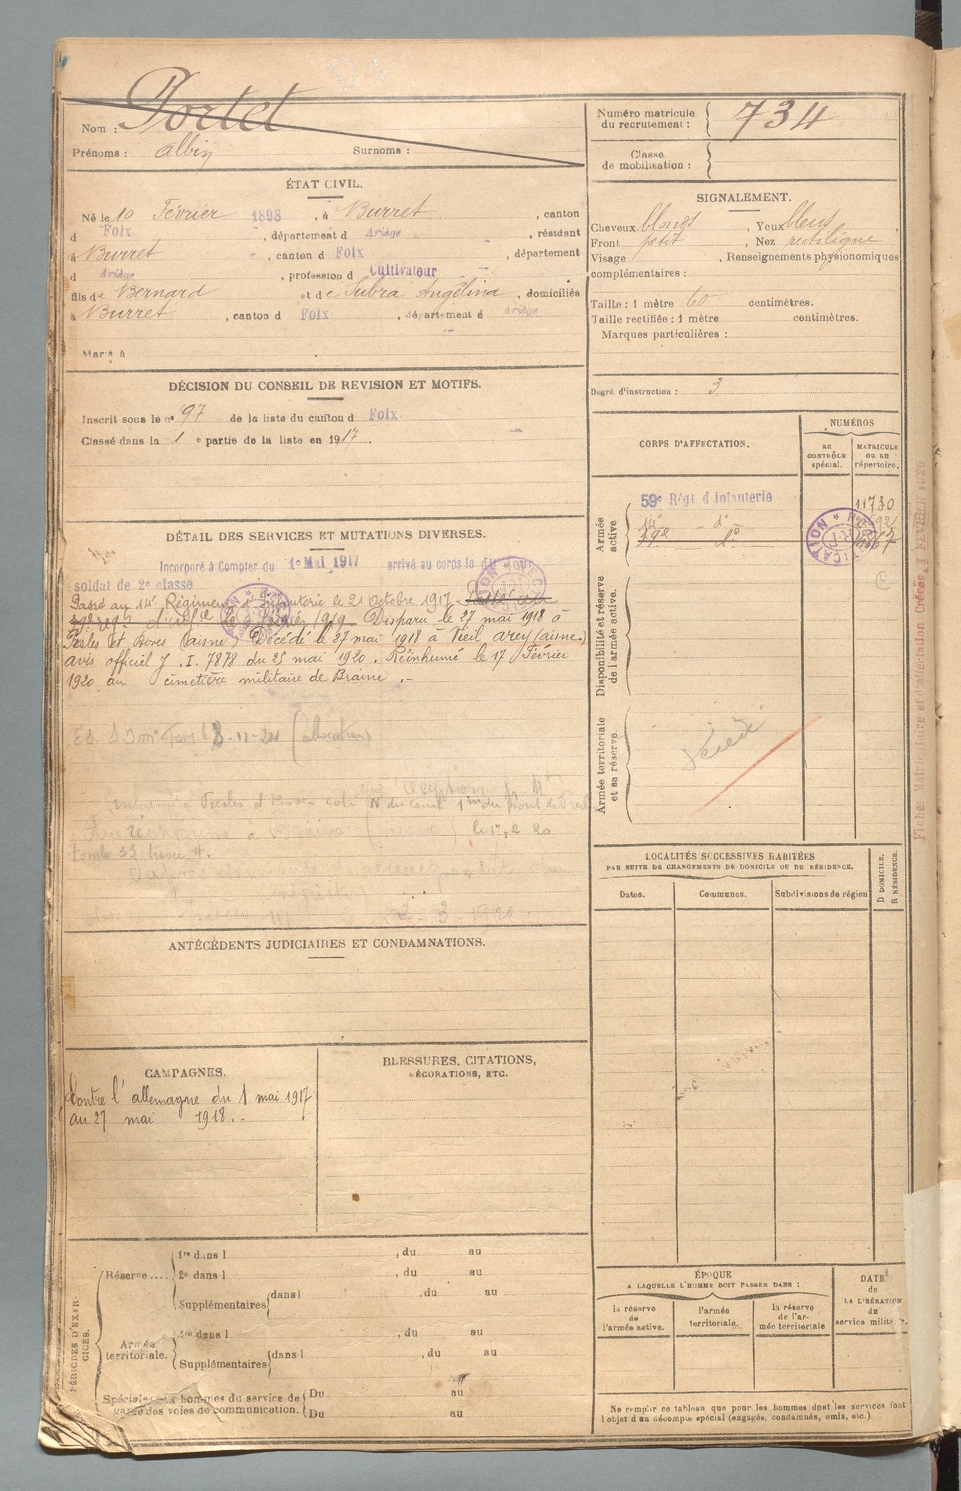 Nom : Portet
Prénoms : Albin Surnoms :
Numéro matricule du recrutement : 734
Classe de mobilisation :
ÉTAT CIVIL.
Né le 10 Février 1898, à Burret, canton
d Foix, département d Ariège, résidant
à Burret, canton d Foix, département
d Ariège, profession d Cultivateur
fils de Bernard et de Subra Angélina, domiciliés
à Burret, canton d Foix, département d Ariège
Marié à
DÉCISION DU CONSEIL DE REVISION ET MOTIFS.
Inscrit sous le nº 97 de la liste du canton d Foix
Classé dans la 1 e partie de la liste en 1917.
DÉTAIL DES SERVICES ET MUTATIONS DIVERSES.
Incorporé à Compter du 1º Mai 1917 arrivé au corps le dit
soldat de 2e classe
Passé au 14e Régiment d'Infanterie le 21 Octobre 1917. Passé au
Disparu le 27 mai 1918 à
Presles et Boves (Aisne) Décédé le 27 mai 1918 à Vieil Arcy (Aisne)
avis officiel J. I. 7878 du 25 mai 1920. Réinhumé le 17 Février
1920 au cimetière militaire de Braine .-
(allocation)
le 17 2 20
tombe 53
ANTÉCÉDENTS JUDICIAIRES ET CONDAMNATIONS.
CAMPAGNES.
Contre l'allemagne du 1 mai 1917
au 27 mai 1918.-
BLESSURES, CITATIONS,
DÉCORATIONS, ETC.
PÉRIODES D'EXERCICES.
Réserve....
1re dans l , du au
2e dans l , du au
Supplémentaires dans l , du au
Armée territoriale.
1re dans l , du au
Supplémentaires dans l , du au
Spéciales aux hommes du service de garde des voies de communication.
Du au
Du au
SIGNALEMENT.
Cheveux blonds, Yeux bleus,
Front petit, Nez rectiligne
Visage , Renseignements physionomiques
complémentaires :
Taille : 1 mètre 60 centimètres.
Taille rectifiée : 1 mètre centimètres.
Marques particulières :
Degré d'instruction : 3
CORPS D'AFFECTATION.
NUMÉROS
AU CONTRÔLE spécial.
MATRICULE OU AU répertoire.
Armée active
59e Régt d'Infanterie 11730
14e - dº
Disponibilité et réserve de l'armée active.
Armée territoriale et sa réserve.
Décédé
LOCALITÉS SUCCESSIVES HABITÉES
PAR SUITE DE CHANGEMENTS DE DOMICILE OU DE RÉSIDENCE.
Dates.
Communes.
Subdivisions de région
D DOMICILE. R RÉSIDENCE.
ÉPOQUE
A LAQUELLE L'HOMME DOIT PASSER DANS :
la réserve de l'armée active.
l'armée territoriale.
la réserve de l'armée territoriale
DATE
de
LA LIBÉRATION
du
service militaire.
Ne remplir ce tableau que pour les hommes dont les services font
l'objet d'un décompte spécial (engagés, condamnés, omis, etc.)
Fiche Matriculaire et d'affectation Créées, 1 FEVRIER 1920